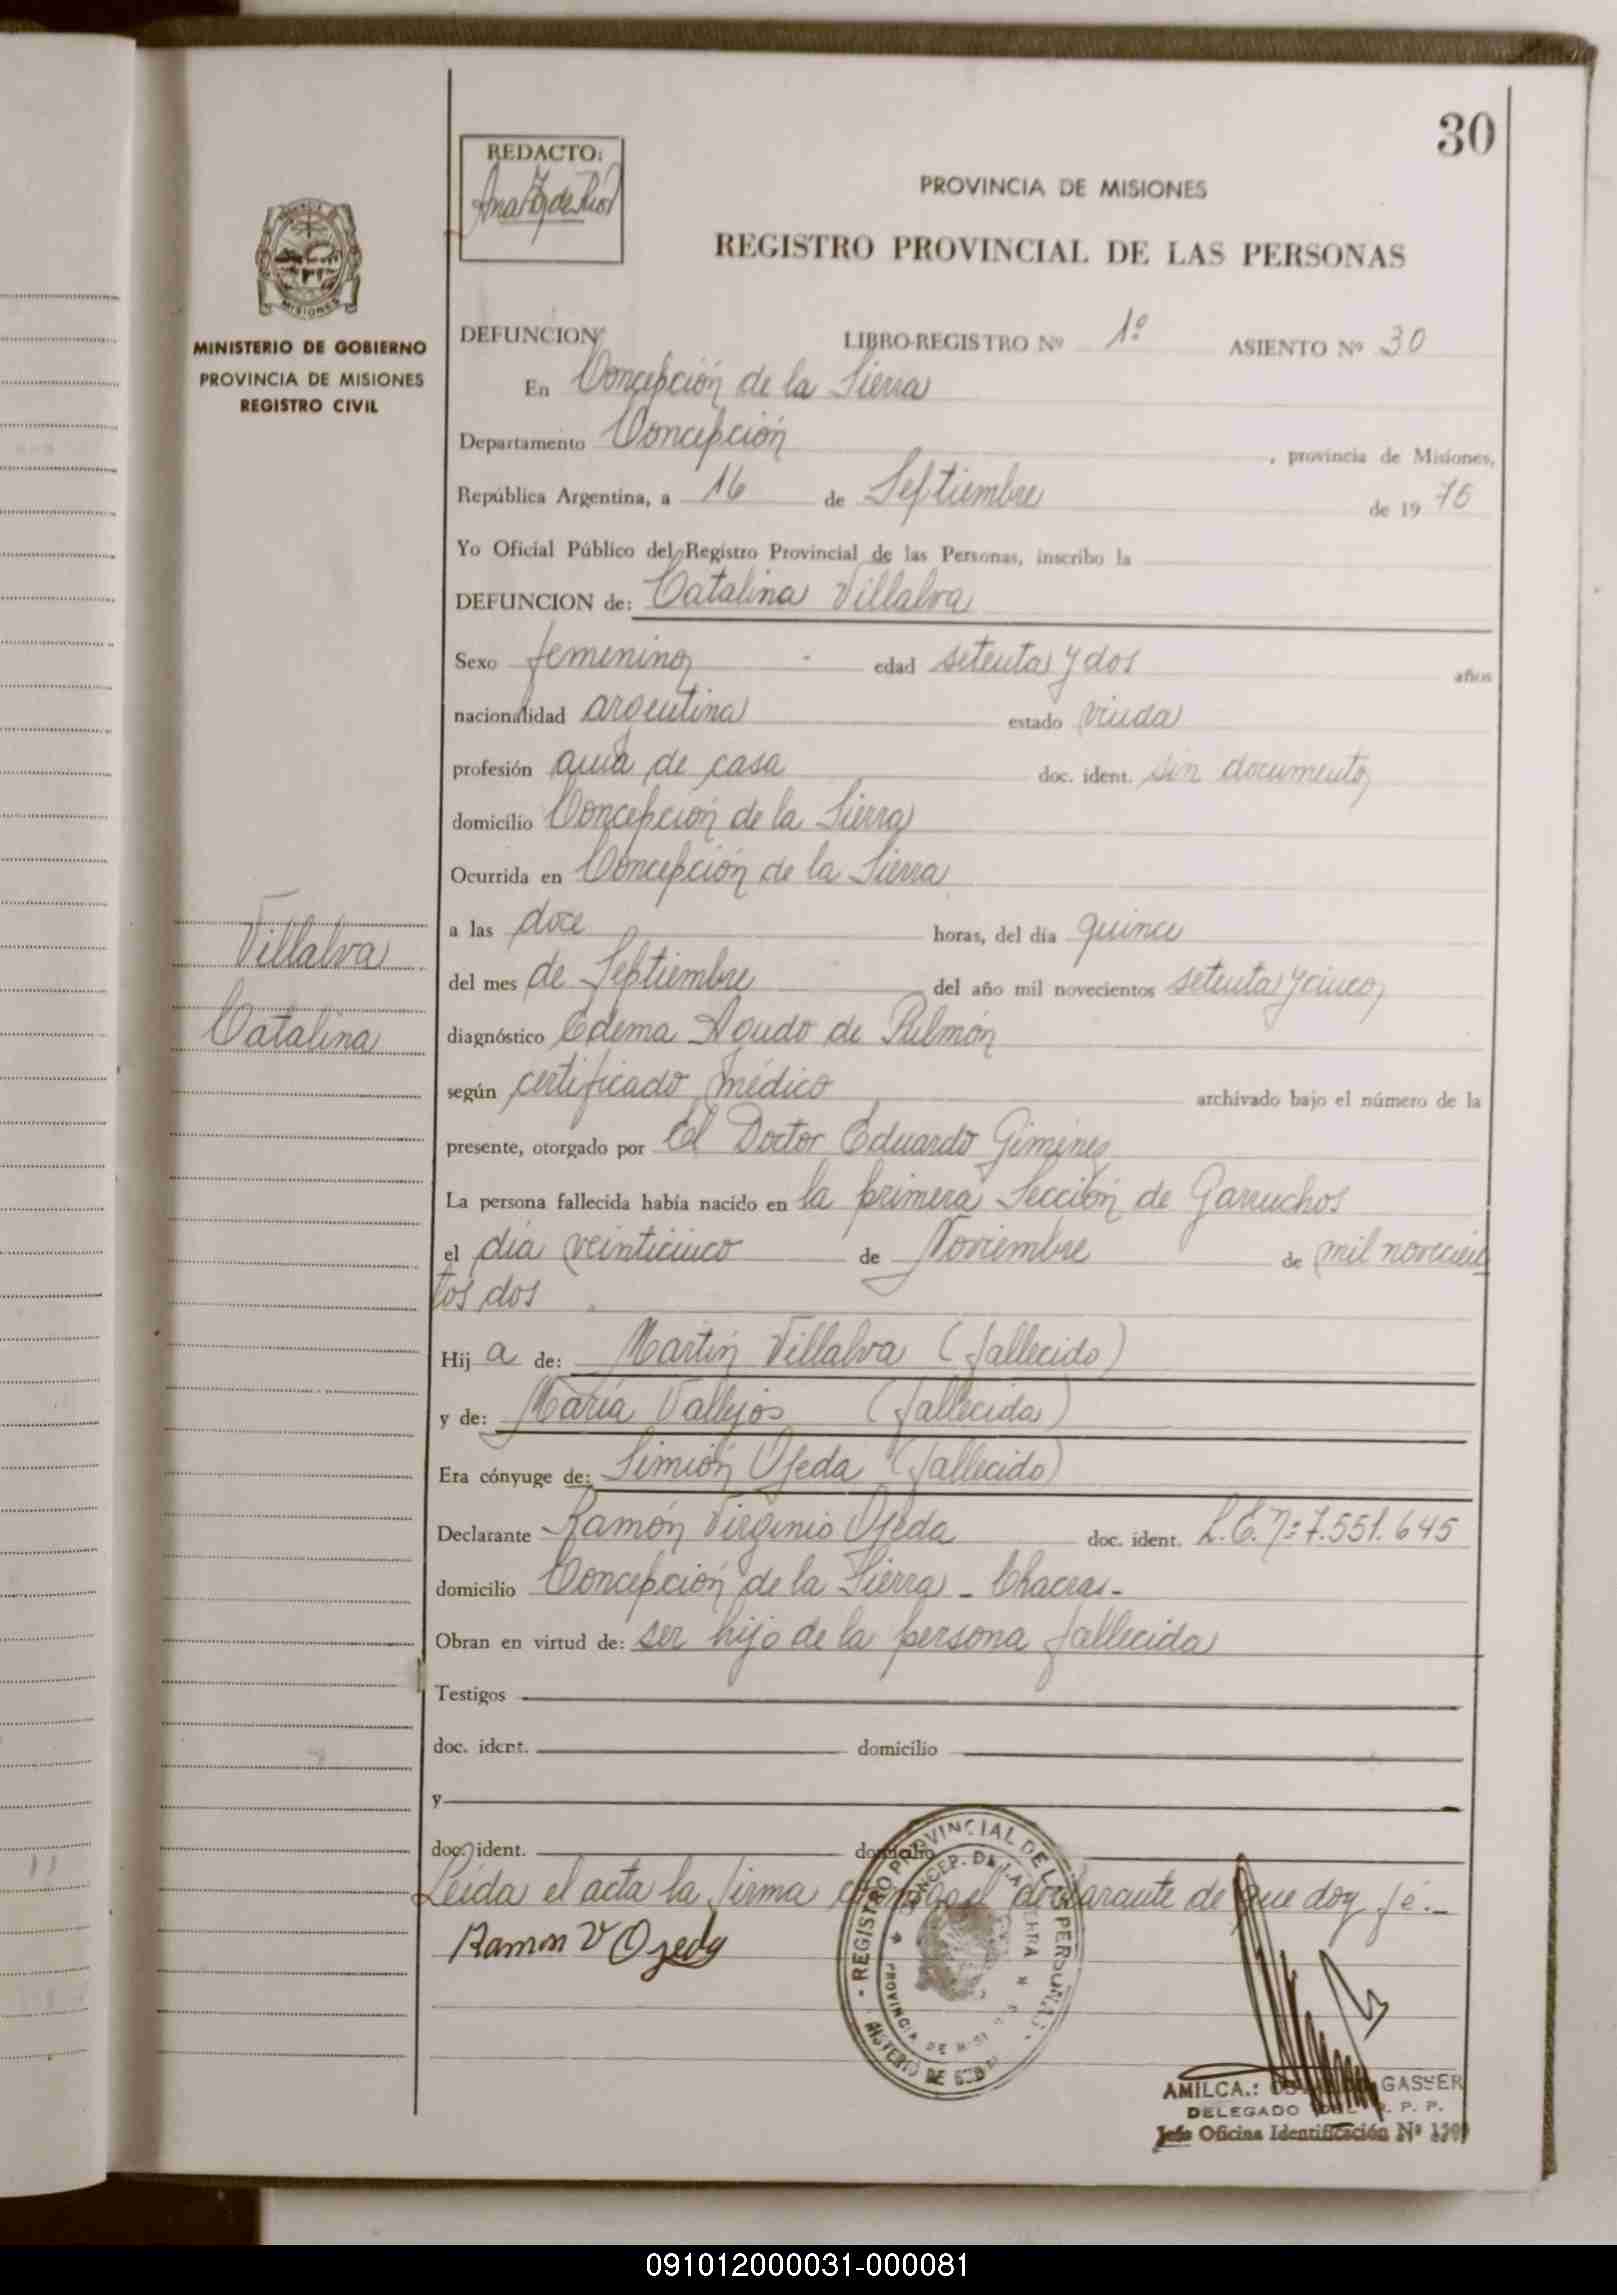 30
REDACTO:
PROVINCIA DE MISIONES
REGISTRO PROVINCIAL DE LAS PERSONAS
MISIONES
MINISTERIO DE GOBIERNO
PROVINCIA DE MISIONES
REGISTRO CIVIL
DEFUNCION LIBRO-REGISTRO Nº 1º ASIENTO Nº 30
En Concepción de la Sierra
Departamento Concepción , provincia de Misiones,
República Argentina, a 16 de Septiembre de 19 75
Yo Oficial Público del Registro Provincial de las Personas, inscribo la
DEFUNCION de: Catalina Villalva
Sexo femenino edad setenta y dos años
nacionalidad argentina estado viuda
profesión ama de casa doc. ident. sin documento
domicilio Concepción de la Sierra
Ocurrida en Concepción de la Sierra
a las doce horas, del día quince
del mes de Septiembre del año mil novecientos setenta y cinco
Villalva
Catalina
diagnóstico Edema Agudo de Pulmón
según certificado médico archivado bajo el número de la
presente, otorgado por El Doctor Eduardo Gimenez
La persona fallecida había nacido en la primera Sección de Garruchos
el día veinticinco de Noviembre de mil novecien
tos dos
Hij a de: Martín Villalva (fallecido)
y de: María Vallejos (fallecida)
Era cónyuge de: Simión Ojeda (fallecido)
Declarante Ramón Virginio Ojeda doc. ident. L.E. Nº 7.551.645
domicilio Concepción de la Sierra - Chacras -
Obran en virtud de: ser hijo de la persona fallecida
Testigos
doc. ident. domicilio
y
doc. ident. domicilio
Leída el acta la firma conmigo el declarante de que doy fé.-
Ramon V Ojeda
REGISTRO PROVINCIAL DE LAS PERSONAS
PROVINCIA DE
GASSER
DELEGADO R. P. P.
Jefe Oficina Identificación Nº
091012000031-000081